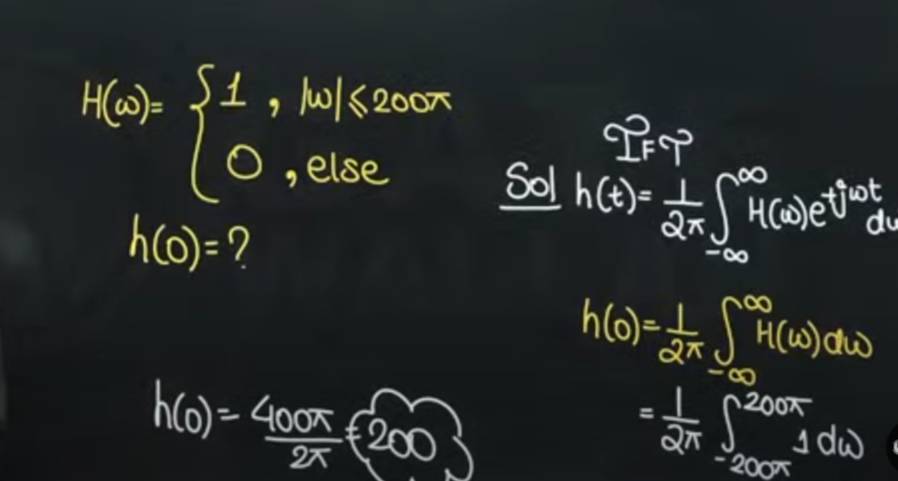 H(ω)= { 1 , |ω|≤200π
0 , else
h(0)=?
IFT
Sol h(t)= 1/2π ∫_{-∞}^{∞} H(ω)e^{+jωt} dω
h(0)= 1/2π ∫_{-∞}^{∞} H(ω)dω
= 1/2π ∫_{-200π}^{200π} 1 dω
h(0)= 400π/2π = 200